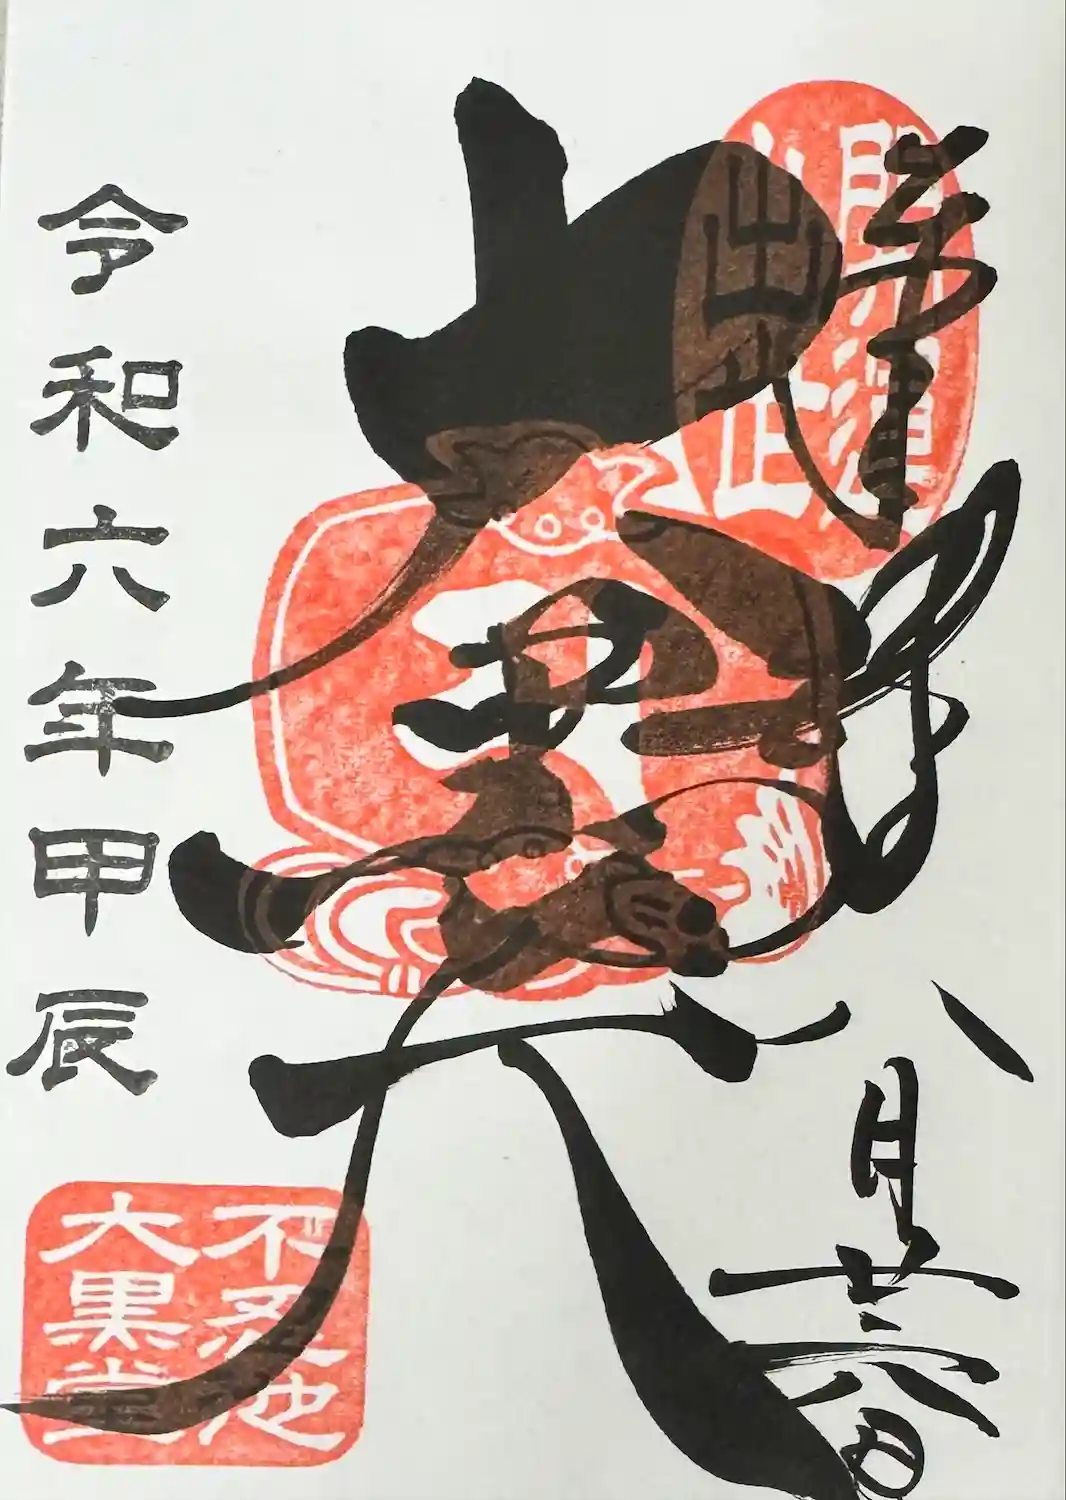 奉拝
八月廿六日
大黒天
令和六年甲辰
不忍池
大黒堂